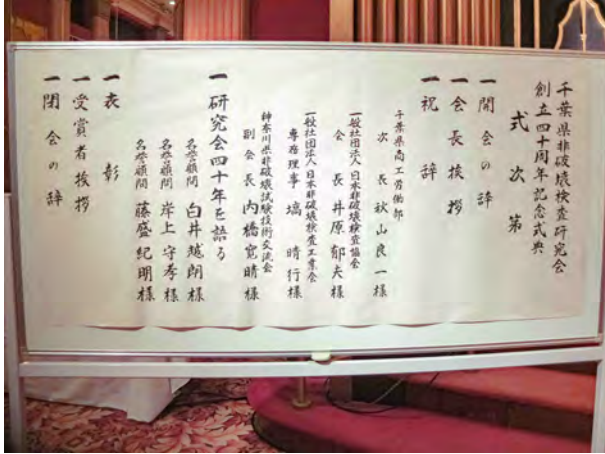 千葉県非破壊検査研究会
創立四十周年記念式典
式次第
一開会の辞
一会長挨拶
一祝辞
千葉県商工労働部
次長 秋山良一様
一般社団法人日本非破壊検査協会
会長 井原郁夫様
一般社団法人日本非破壊検査工業会
専務理事 塙晴行様
神奈川県非破壊試験技術交流会
副会長 内橋寛晴様
一研究会四十年を語る
名誉顧問 臼井越朗様
名誉顧問 岸上守孝様
名誉顧問 藤盛紀明様
一表彰
一受賞者挨拶
一閉会の辞